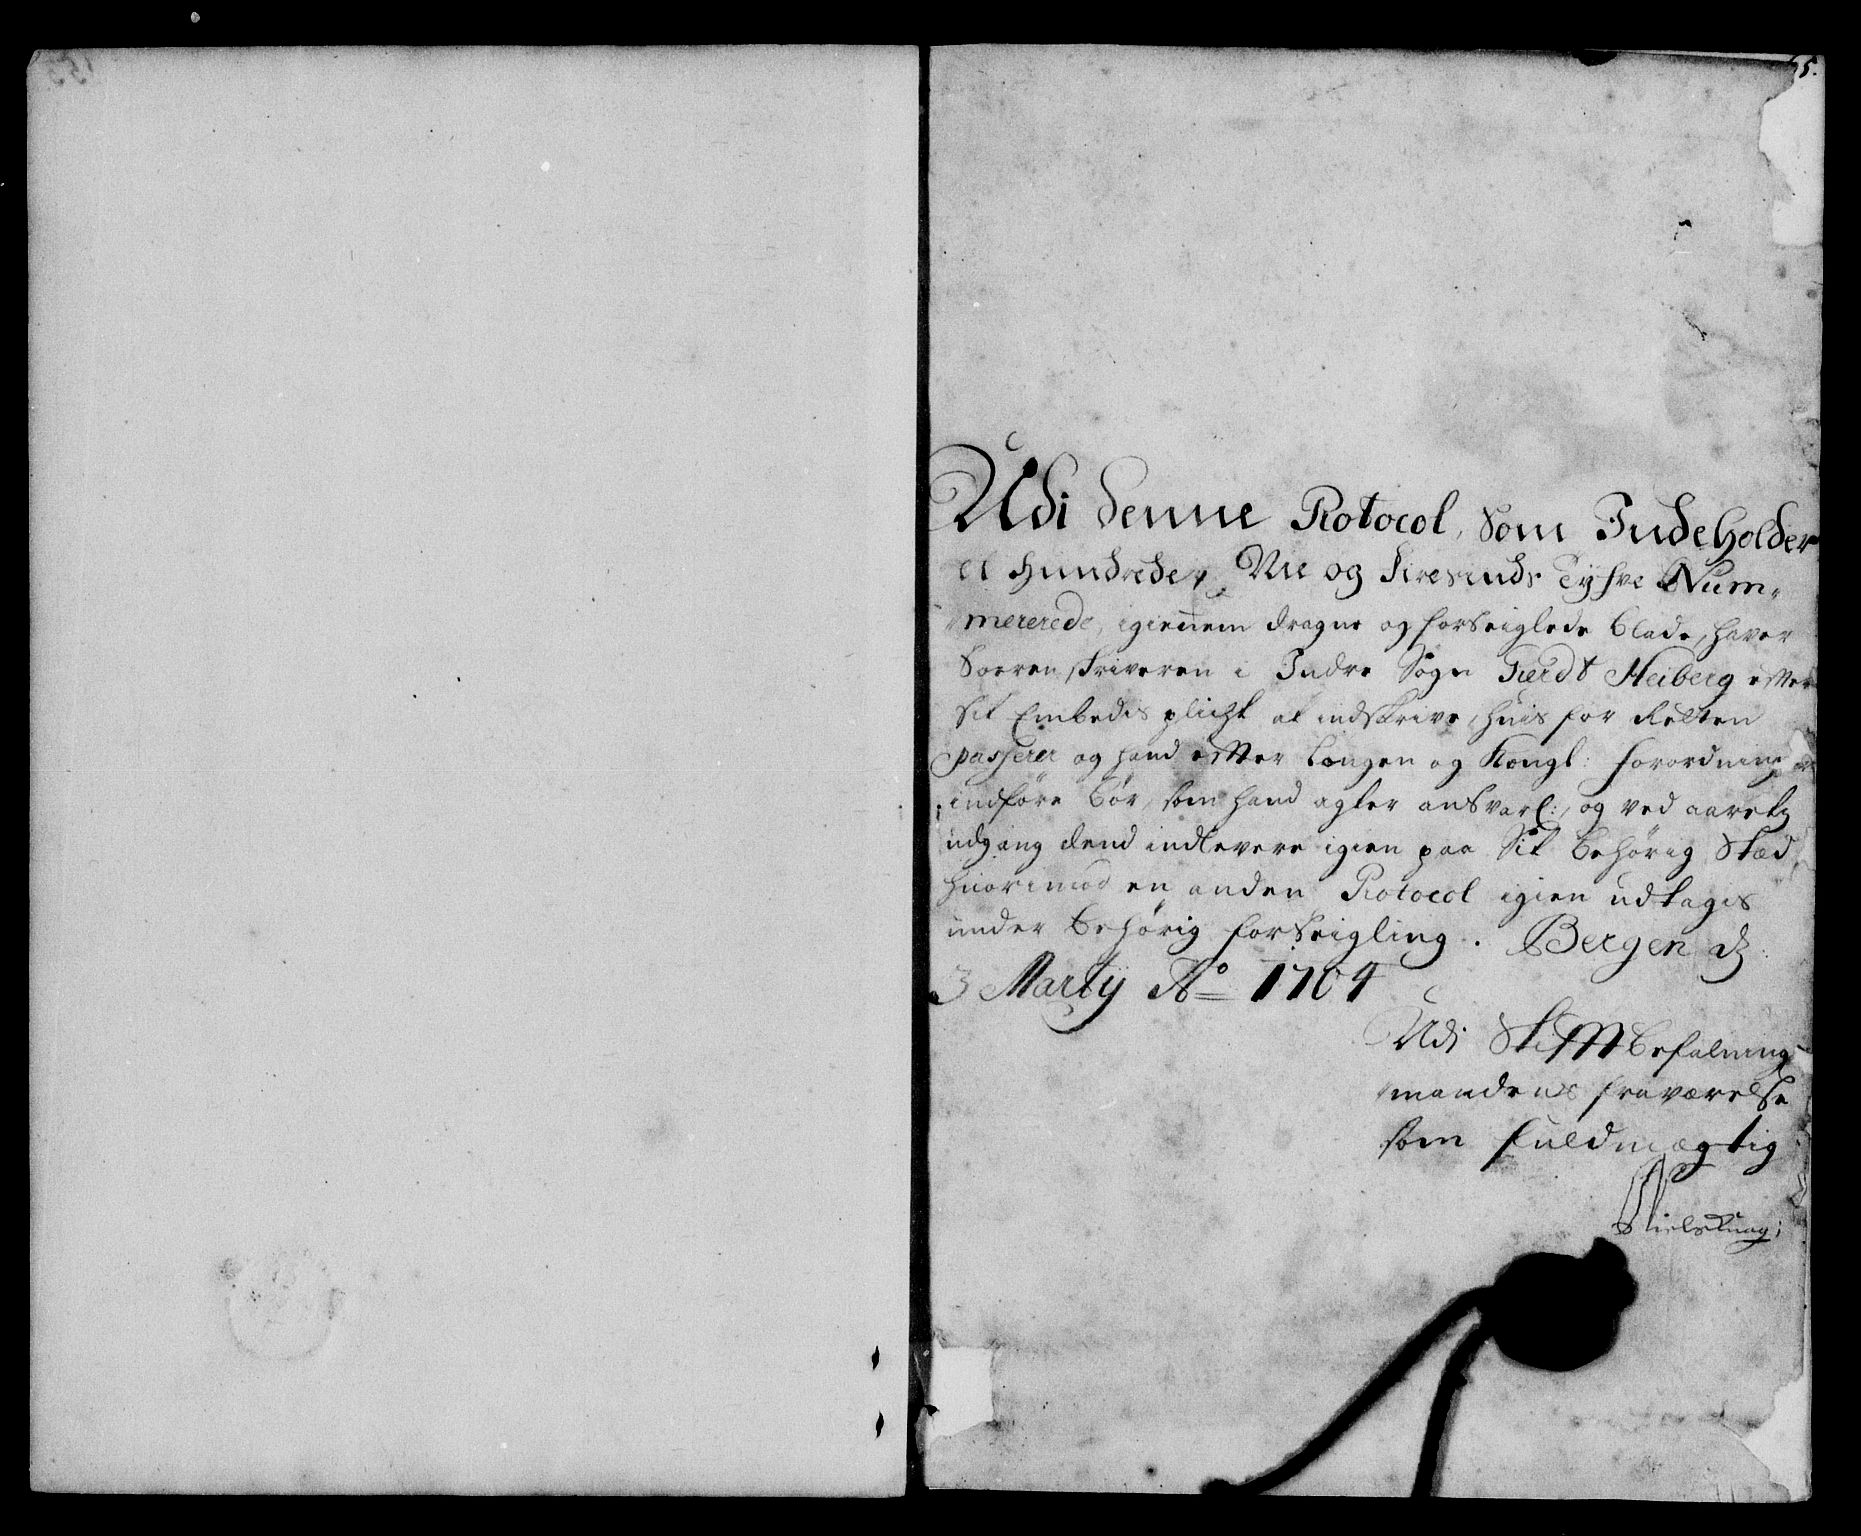 5.
Udi denne Protocol, som Indeholder
et Hundrede, Nie og Firesinds Tyfve Num-
mererede, igiennem dragne og forseiglede blade, haver
Soerenskriveren i Indre Sogn Gierdt Heiberg efter
sit Embedis plicht at indskrive, huis for Retten
passerer og hand efter Lougen og Kongl: forordninger
indføre bør, som hand agter ansvarl:, og ved aaretz
udgang dend indlevere igien paa Sit behørig Stæd,
huorimod en anden Protocol igien udtagis
under behørig forseigling. Bergen d.
3 Martij Ao 1704
Udi Stiftbefalning
mandens fraværelse
som fuldmægtig
Niels Knag;